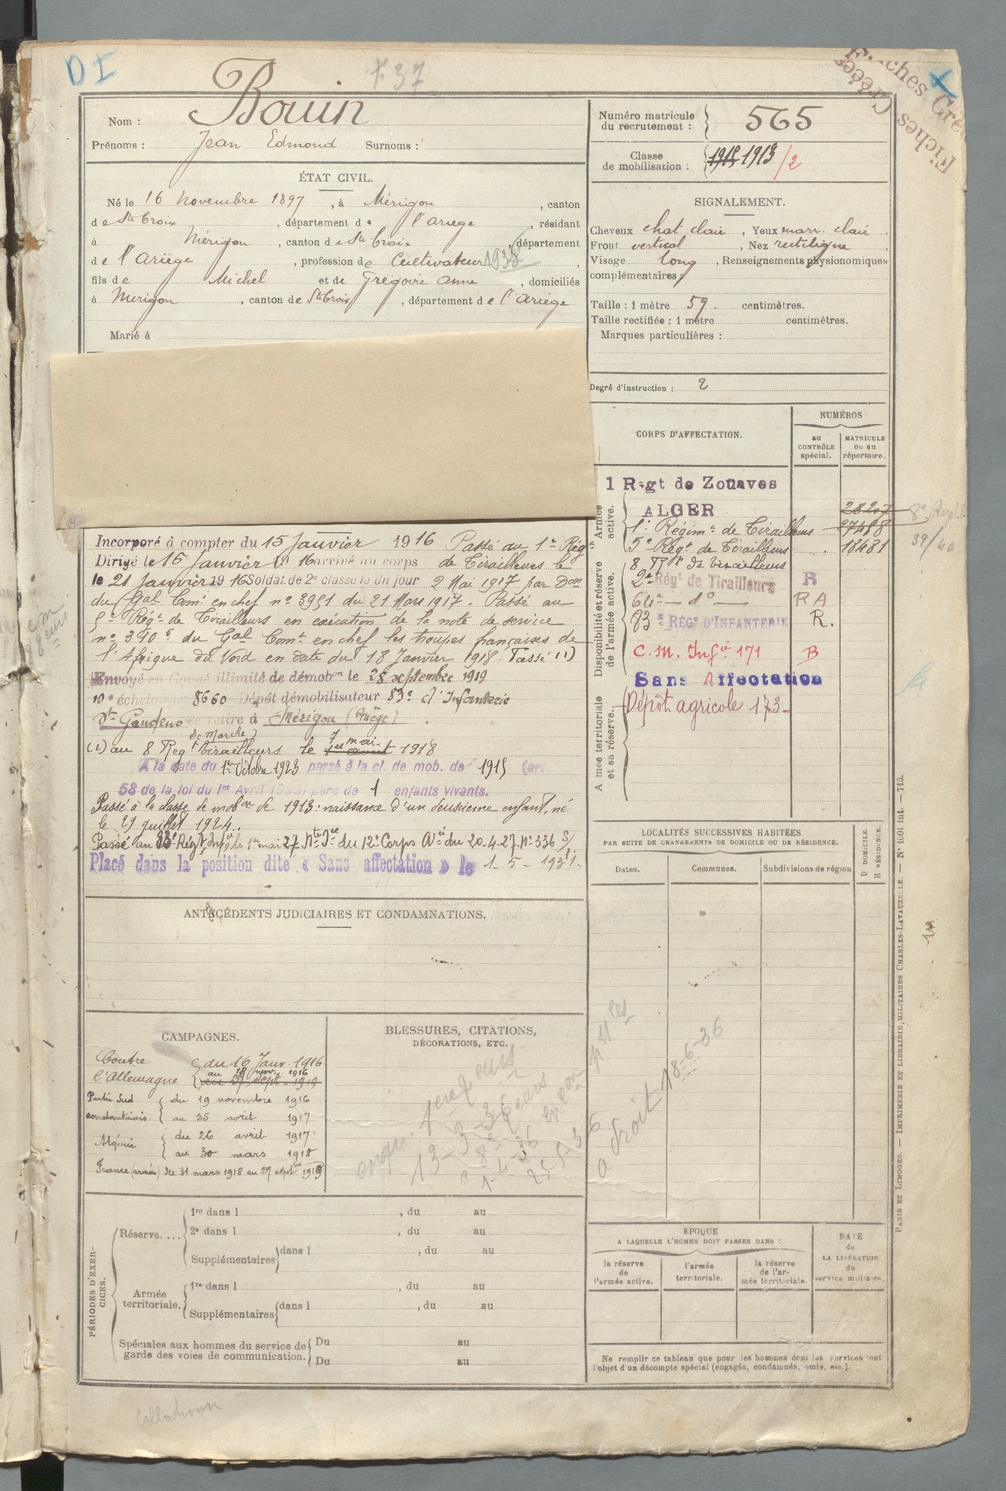 D I
F 37
Fiches Créées
Fiches Créées
Nom : Bouin
Prénoms : Jean Edmond Surnoms :
Numéro matricule du recrutement : 565
Classe de mobilisation : 1915 1913 /2
ÉTAT CIVIL.
Né le 16 novembre 1897, à Mérigon, canton
de Ste Croix, département de l'Ariège, résidant
à Mérigon, canton de Ste Croix, département
de l'Ariège, profession de Cultivateur 1938
fils de Michel et de Grégoire Anne, domiciliés
à Mérigon, canton de Ste Croix, département de l'Ariège
Marié à
SIGNALEMENT.
Cheveux chat clair, Yeux marr. clair
Front vertical, Nez rectiligne
Visage long, Renseignements physionomiques
complémentaires :
Taille : 1 mètre 59 centimètres.
Taille rectifiée : 1 mètre centimètres.
Marques particulières :
Degré d'instruction : 2
CORPS D'AFFECTATION.
NUMÉROS
au contrôle spécial.
MATRICULE ou au répertoire.
Armée active.
1 Regt de Zouaves
ALGER
1er Régimt de Tirailleurs
5e Régt de Tirailleurs 18481
8 Rgt de Tirailleurs
Disponibilité et réserve de l'armée active.
2e Régt de Tirailleurs R
64e — do — RA
83e RÉGt D'INFANTERIE R.
C.M. Infie 171 B
Sans Affectation
Armée territoriale et sa réserve.
Dépôt agricole 173
39/40
Incorporé à compter du 15 Janvier 1916 Passé au 1er Régt
Dirigé le 15 Janvier 1916 arrivé au corps de Tirailleurs le
le 21 Janvier 1916 Soldat de 2e classe le dit jour 2 Mai 1917 par Don
du Gal Comt en chef no 3951 du 21 Mars 1917. Passé au
5e Régt de Tirailleurs en exécution de la note de service
no 390 du Gal Comt en chef les troupes françaises de
l'Afrique du Nord en date du 18 Janvier 1918 Passé (1)
Envoyé en Congé illimité de démobon le 28 septembre 1919
10e échelon no 8660 Dépôt démobilisateur 83e d'Infanterie
St Gaudens se retire à Mérigon (Ariège)
(1) au 8 Regt de Marche Tirailleurs le 7 mai 1918
A la date du 1er Octobre 1923 passé à la cl. de mob. de 1915 (art.
58 de la loi du 1er Avril 1923) père de 1 enfants vivants.
Passé à la classe de mobon de 1913: naissance d'un deuxième enfant, né
le 29 juillet 1924.
Passé au 83e Régt Infie le 1er mai 27 Nte Sce du 12e Corps Ar du 20-4-27 No 336 S/
Placé dans la position dite « Sans affectation » le 1-5-1931.
ANTÉCÉDENTS JUDICIAIRES ET CONDAMNATIONS.
LOCALITÉS SUCCESSIVES HABITÉES
PAR SUITE DE CHANGEMENTS DE DOMICILE OU DE RÉSIDENCE.
Dates.
Communes.
Subdivisions de région
D DOMICILE.
R RÉSIDENCE.
CAMPAGNES.
Contre l'Allemagne du 16 Janv. 1916
au 18 nov. 1916
au 27 sept. 1919
Partie Sud constantinois du 19 novembre 1916
au 25 avril 1917
Algérie du 26 avril 1917
au 30 mars 1918
France (armées) du 31 mars 1918 au 27 septbre 1919
BLESSURES, CITATIONS,
DÉCORATIONS, ETC.
13-3-36
a droit 18-6-36
PÉRIODES D'EXERCICES.
Réserve....
1re dans l , du au
2e dans l , du au
Supplémentaires dans l , du au
Armée territoriale.
1re dans l , du au
Supplémentaires dans l , du au
Spéciales aux hommes du service de garde des voies de communication.
Du au
Du au
ÉPOQUE
A LAQUELLE L'HOMME DOIT PASSER DANS :
la réserve de l'armée active.
l'armée territoriale.
la réserve de l'armée territoriale.
DATE de LA LIBÉRATION du service militaire.
Ne remplir ce tableau que pour les hommes dont les services sont
l'objet d'un décompte spécial (engagés, condamnés, omis, etc.).
PARIS ET LIMOGES. — IMPRIMERIE ET LIBRAIRIE MILITAIRES CHARLES-LAVAUZELLE. — No 1001 int. — 715.